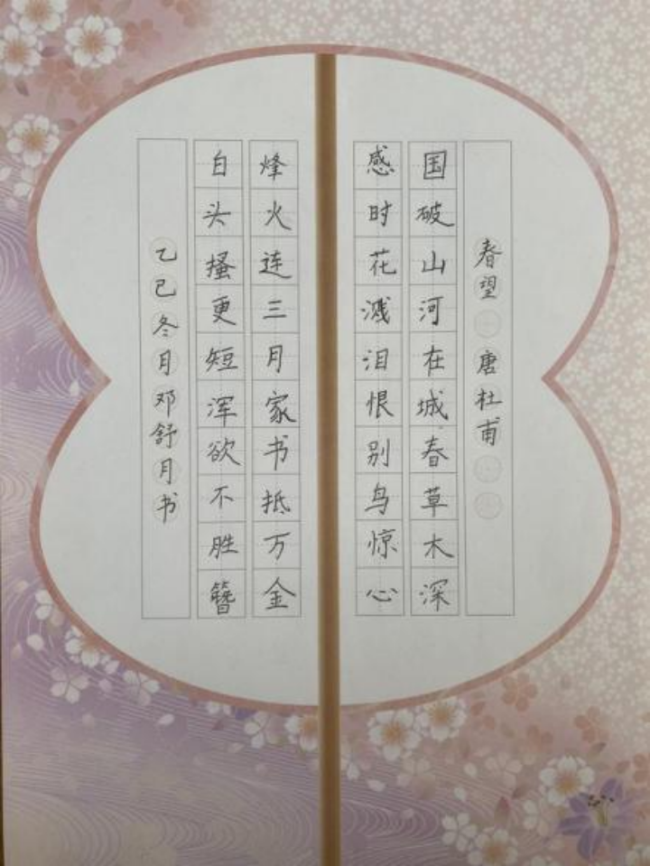 春望 唐杜甫
国破山河在城春草木深
感时花溅泪恨别鸟惊心
烽火连三月家书抵万金
白头搔更短浑欲不胜簪
乙巳冬月邓舒月书